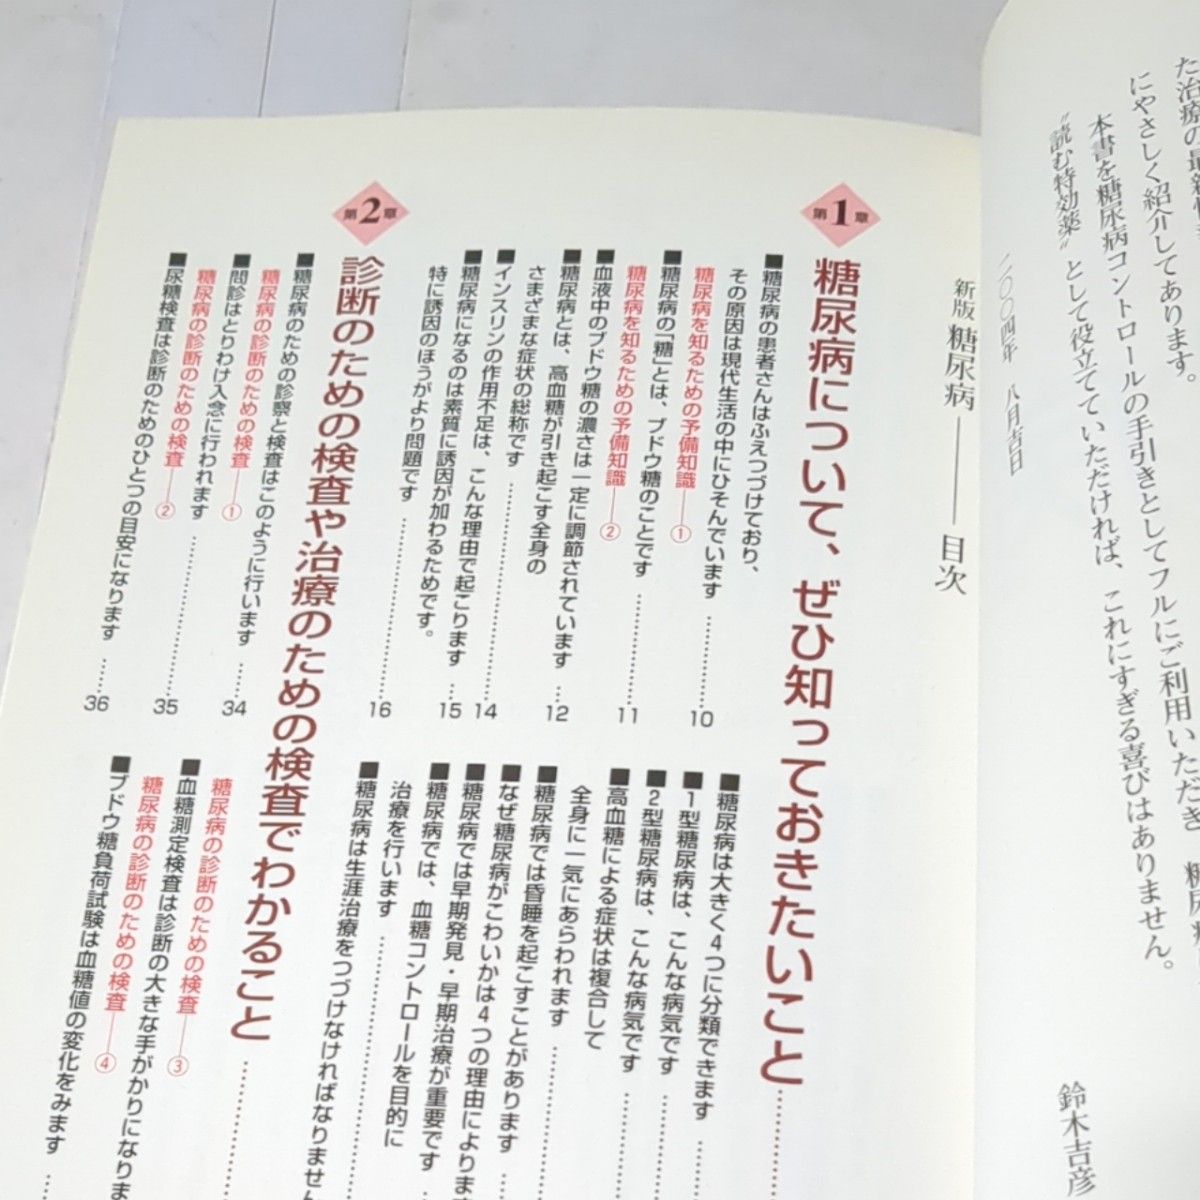 た治療の最新情
にやさしく紹介してあります。
本書を糖尿病コントロールの手引きとしてフルにご利用いただき、糖尿病
〝読む特効薬〟として役立てていただければ、これにすぎる喜びはありません。
二〇〇四年 八月吉日
鈴木吉彦
新版 糖尿病――目次
第1章
糖尿病について、ぜひ知っておきたいこと
■糖尿病の患者さんはふえつづけており、
その原因は現代生活の中にひそんでいます……10
糖尿病を知るための予備知識――①
■糖尿病の「糖」とは、ブドウ糖のことです……11
糖尿病を知るための予備知識――②
■血液中のブドウ糖の濃さは一定に調節されています…12
■糖尿病とは、高血糖が引き起こす全身の
さまざまな症状の総称です……14
■インスリンの作用不足は、こんな理由で起こります…15
■糖尿病になるのは素質に誘因が加わるためです。
特に誘因のほうがより問題です……16
■糖尿病は大きく4つに分類できます
■1型糖尿病は、こんな病気です
■2型糖尿病は、こんな病気です
■高血糖による症状は複合して
全身に一気にあらわれます
■糖尿病では昏睡を起こすことがあります
■なぜ糖尿病がこわいかは4つの理由によりま
■糖尿病では早期発見・早期治療が重要です
■糖尿病では、血糖コントロールを目的に
治療を行います
■糖尿病は生涯治療をつづけなければなりません
第2章
診断のための検査や治療のための検査でわかること
■糖尿病のための診察と検査はこのように行います…34
糖尿病の診断のための検査――①
■問診はとりわけ入念に行われます……35
糖尿病の診断のための検査――②
■尿糖検査は診断のためのひとつの目安になります…36
糖尿病の診断のための検査――③
■血糖測定検査は診断の大きな手がかりになりま
糖尿病の診断のための検査――④
■ブドウ糖負荷試験は血糖値の変化をみます